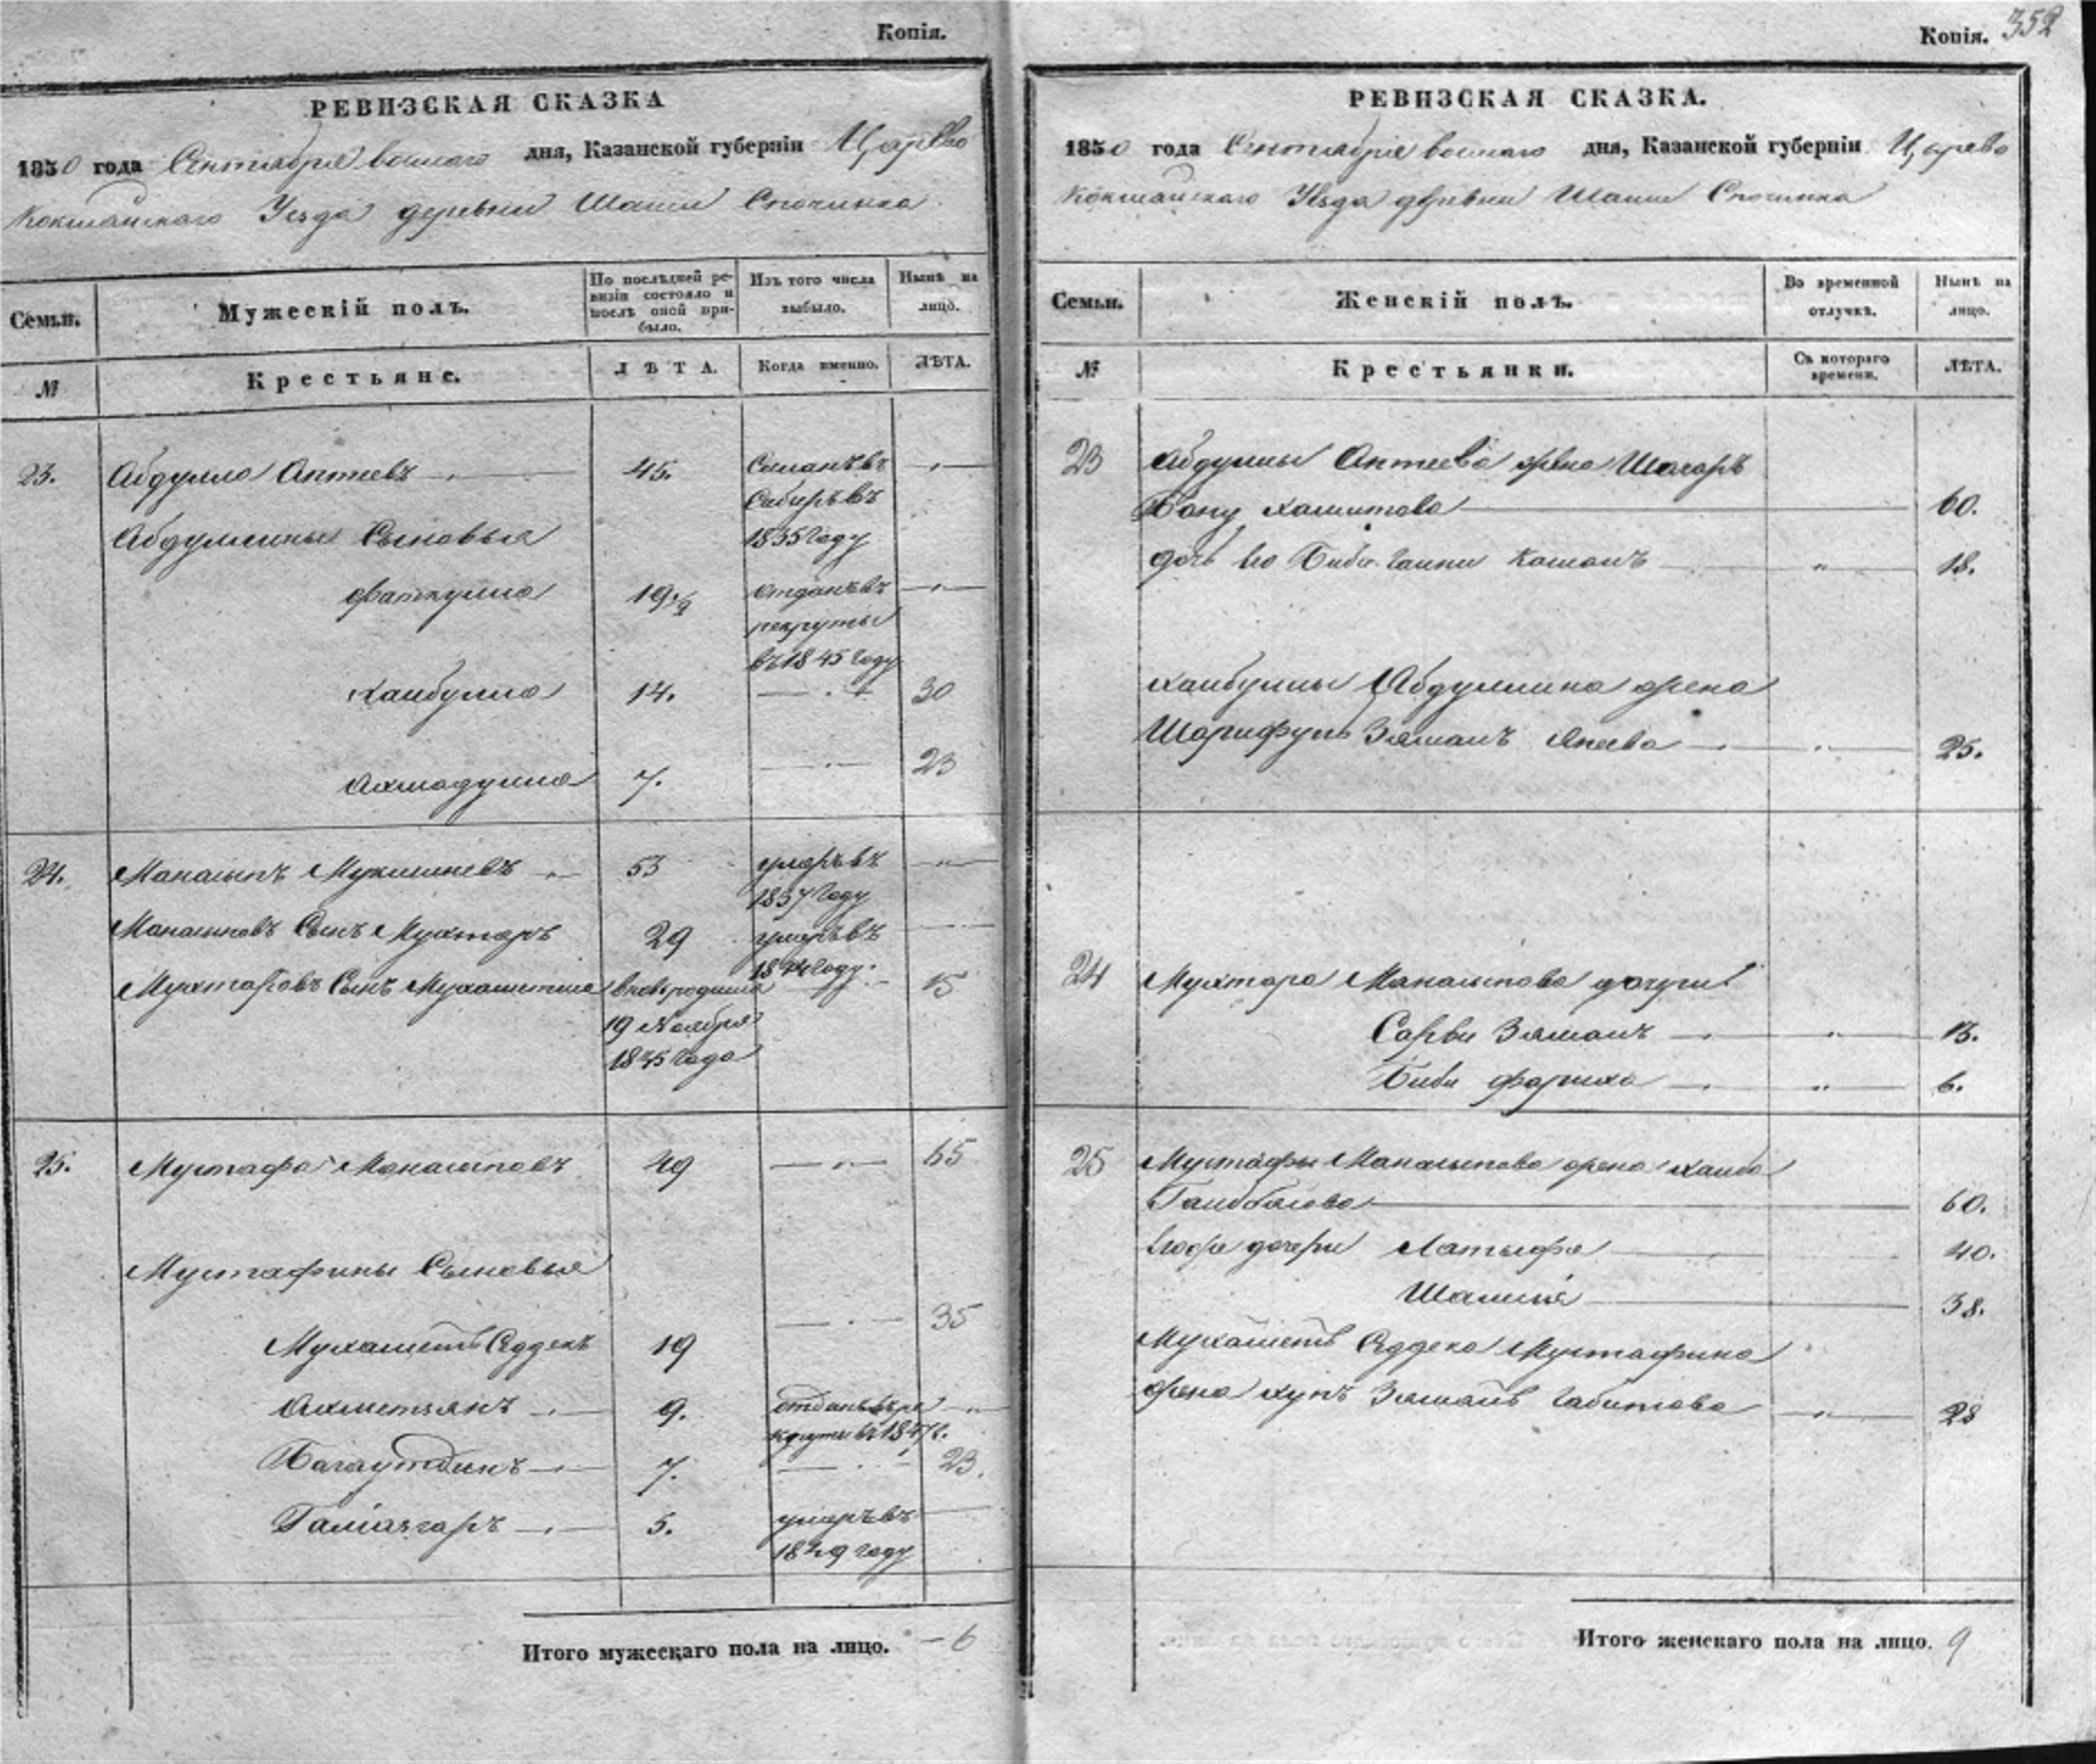 Копія.
РЕВИЗСКАЯ СКАЗКА
1850 года Сентября восмаго дня, Казанской губерніи Царево
Кокшайскаго Уѣзда деревни Шаши
Семьи.
Мужескій полъ.
По послѣдней ре-
визіи состояло и
послѣ оной при-
было.
Изъ того числа
выбыло.
Нынѣ на
лицо.
№
Крестьяне.
ЛѢТА.
Когда именно.
ЛѢТА.
23. Абдулла Аптеевъ 45. Сосланъ въ
Сибирь въ
Абдуллины Сыновья 1835 году
Фаткулла 19 1/2 отданъ въ
рекруты
въ 1845 году
Хаибулла 14. 30
Ахмадулла 7. 23
24. Манасыпъ 53 умеръ въ
1837 году
Манасыповъ Сынъ Мухтаръ 29 умеръ въ
году
Мухтаровъ Сынъ вновь родился 15
19 Ноября
1835 года
25. Мустафа Манасыповъ 49 65
Мустафины Сыновья
Мухаметь Седдекъ 19 35
Ахметьянъ 9. отданъ въ ре
круты въ 1847 г.
Багаутдинъ 7. 23.
Галіазгаръ 5. умеръ въ
1849 году
Итого мужескаго пола на лицо. 6
Копія. 352
РЕВИЗСКАЯ СКАЗКА.
1850 года Сентября восмаго дня, Казанской губерніи Царево
Кокшайскаго Уѣзда деревни Шаши
Семьи.
Женскій полъ.
Во временной
отлучкѣ.
Нынѣ на
лицо.
№
Крестьянки.
Съ котораго
времени.
ЛѢТА.
23 Абдуллы Аптеева жена Шагаръ
Бану Хамитова 60.
дочь его Биби Камалъ " 18.
Хаибуллы Абдуллина жена
Шарифуль Зямалъ Янеева " 25.
24 Мухтара Манасыпова дочери
Сарви Зямалъ " 13.
Биби Фариха " 6.
25 Мустафы Манасыпова жена
60.
Егожъ дочери Латыфа 40.
38.
Мухаметь Седдека Мустафина
жена Зямаль Габитова " 28
Итого женскаго пола на лицо. 9